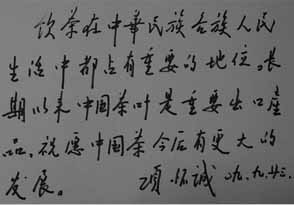 饮茶在中華民族各族人民
生活中都占有重要的地位。長
期以来中国茶叶是重要出口產
品。祝愿中国茶今后有更大的
发展。 項怀誠